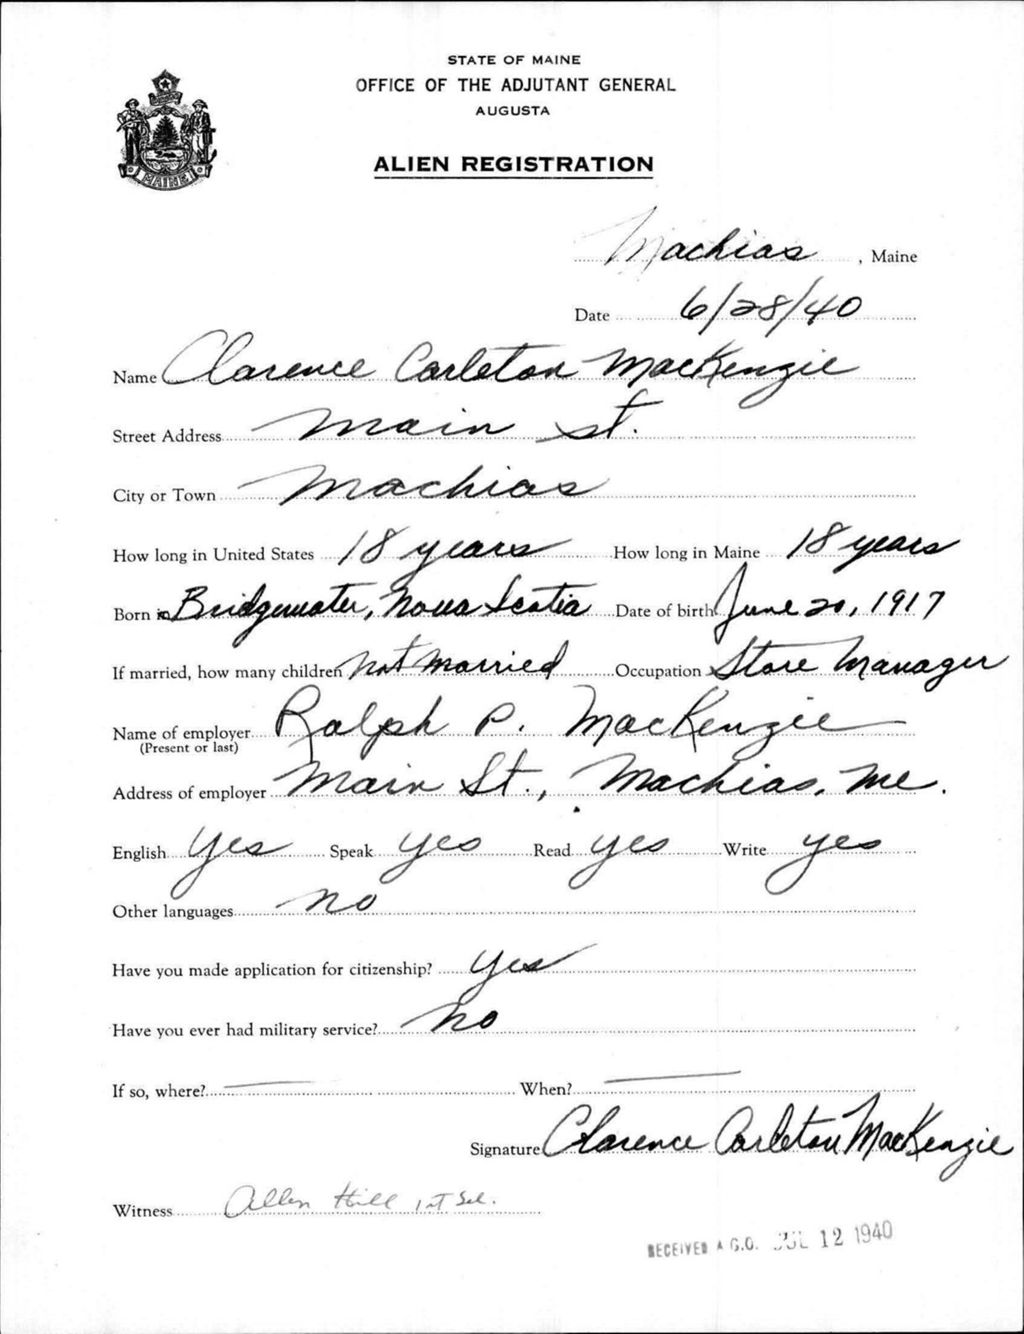 STATE OF MAINE
OFFICE OF THE ADJUTANT GENERAL
AUGUSTA
ALIEN REGISTRATION
MAINE
Machias, Maine
Date 6/28/40
Name Clarence Carleton MacKenzie
Street Address Main St.
City or Town Machias
How long in United States 18 years How long in Maine 18 years
Born in Bridgewater, Nova Scotia Date of birth June 20, 1917
If married, how many children not married Occupation Store Manager
Name of employer Ralph P. MacKenzie
(Present or last)
Address of employer Main St., Machias, Me.
English yes Speak yes Read yes Write yes
Other languages no
Have you made application for citizenship? yes
Have you ever had military service? no
If so, where? When?
Signature Clarence Carleton MacKenzie
Witness Allen Hill 1st Sel.
RECEIVED A.G.O. JUL 12 1940